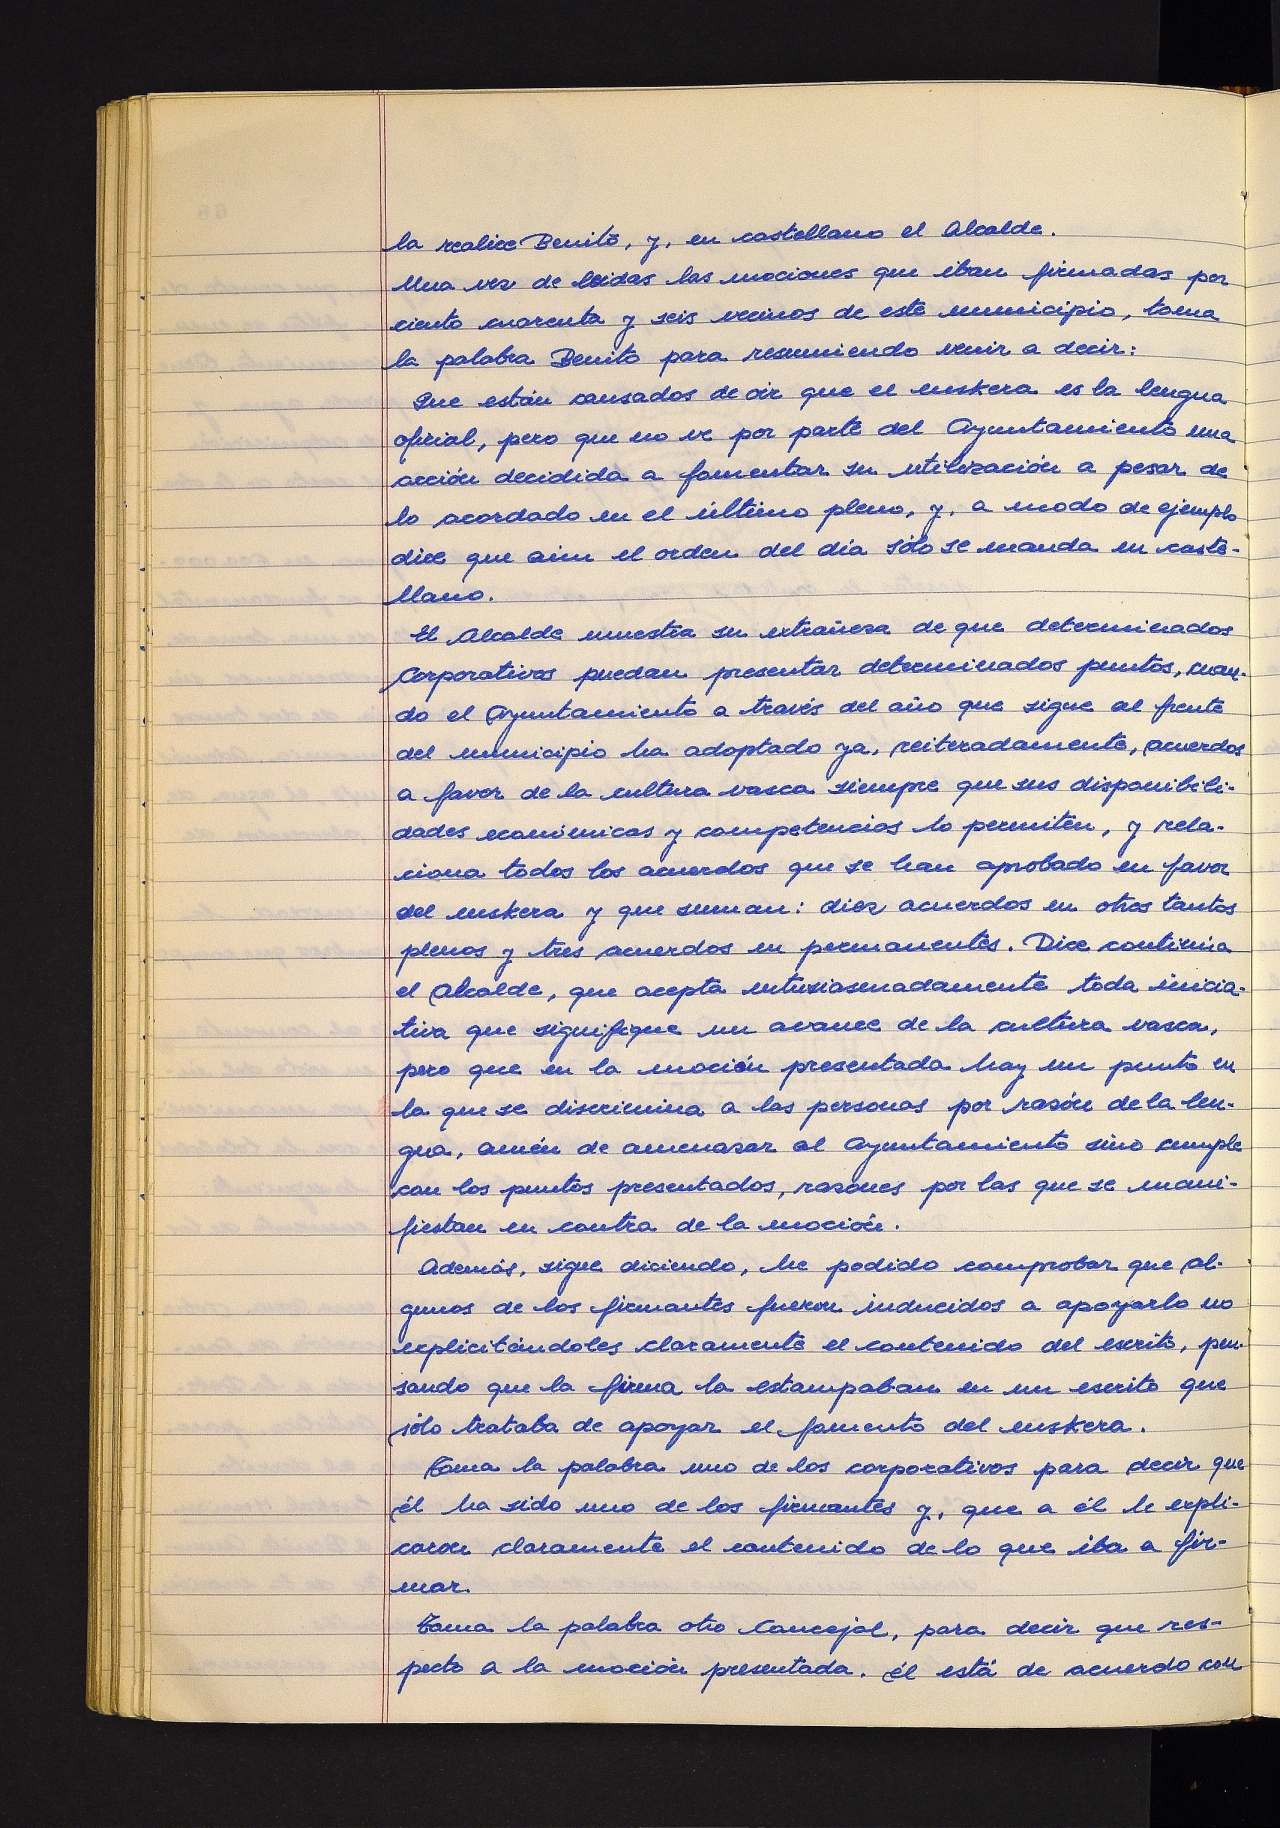 la realice Benito, y, en castellano el Alcalde.
Una vez de leidas las mociones que iban firmadas por
ciento cuarenta y seis vecinos de este municipio, toma
la palabra Benito para resumiendo venir a decir:
Que están cansados de oir que el euskera es la lengua
oficial, pero que no ve por parte del Ayuntamiento una
acción decidida a fomentar su utilización a pesar de
lo acordado en el último pleno, y, a modo de ejemplo
dice que aún el orden del día sólo se manda en caste-
llano.
El Alcalde muestra su extrañeza de que determinados
Corporativos puedan presentar determinados puntos, cuan-
do el Ayuntamiento a través del año que sigue al frente
del municipio ha adoptado ya, reiteradamente, acuerdos
a favor de la cultura vasca siempre que sus disponibili-
dades económicas y competencias lo permiten, y rela-
ciona todos los acuerdos que se han aprobado en favor
del euskera y que suman: diez acuerdos en otros tantos
plenos y tres acuerdos en permanentes. Dice continúa
el Alcalde, que acepta entusiasmadamente toda inicia-
tiva que signifique un avance de la cultura vasca,
pero que en la moción presentada hay un punto en
la que se discrimina a las personas por razón de la len-
gua, amén de amenazar al Ayuntamiento sino cumple
con los puntos presentados, razones por las que se mani-
fiestan en contra de la moción.
Además, sigue diciendo, he podido comprobar que al-
gunos de los firmantes fueron inducidos a apoyarlo no
explicitándoles claramente el contenido del escrito, pen-
sando que la firma la estampaban en un escrito que
sólo trataba de apoyar el fomento del euskera.
Toma la palabra uno de los corporativos para decir que
él ha sido uno de los firmantes y, que a él le expli-
caron claramente el contenido de lo que iba a fir-
mar.
Toma la palabra otro Concejal, para decir que res-
pecto a la moción presentada, él está de acuerdo con